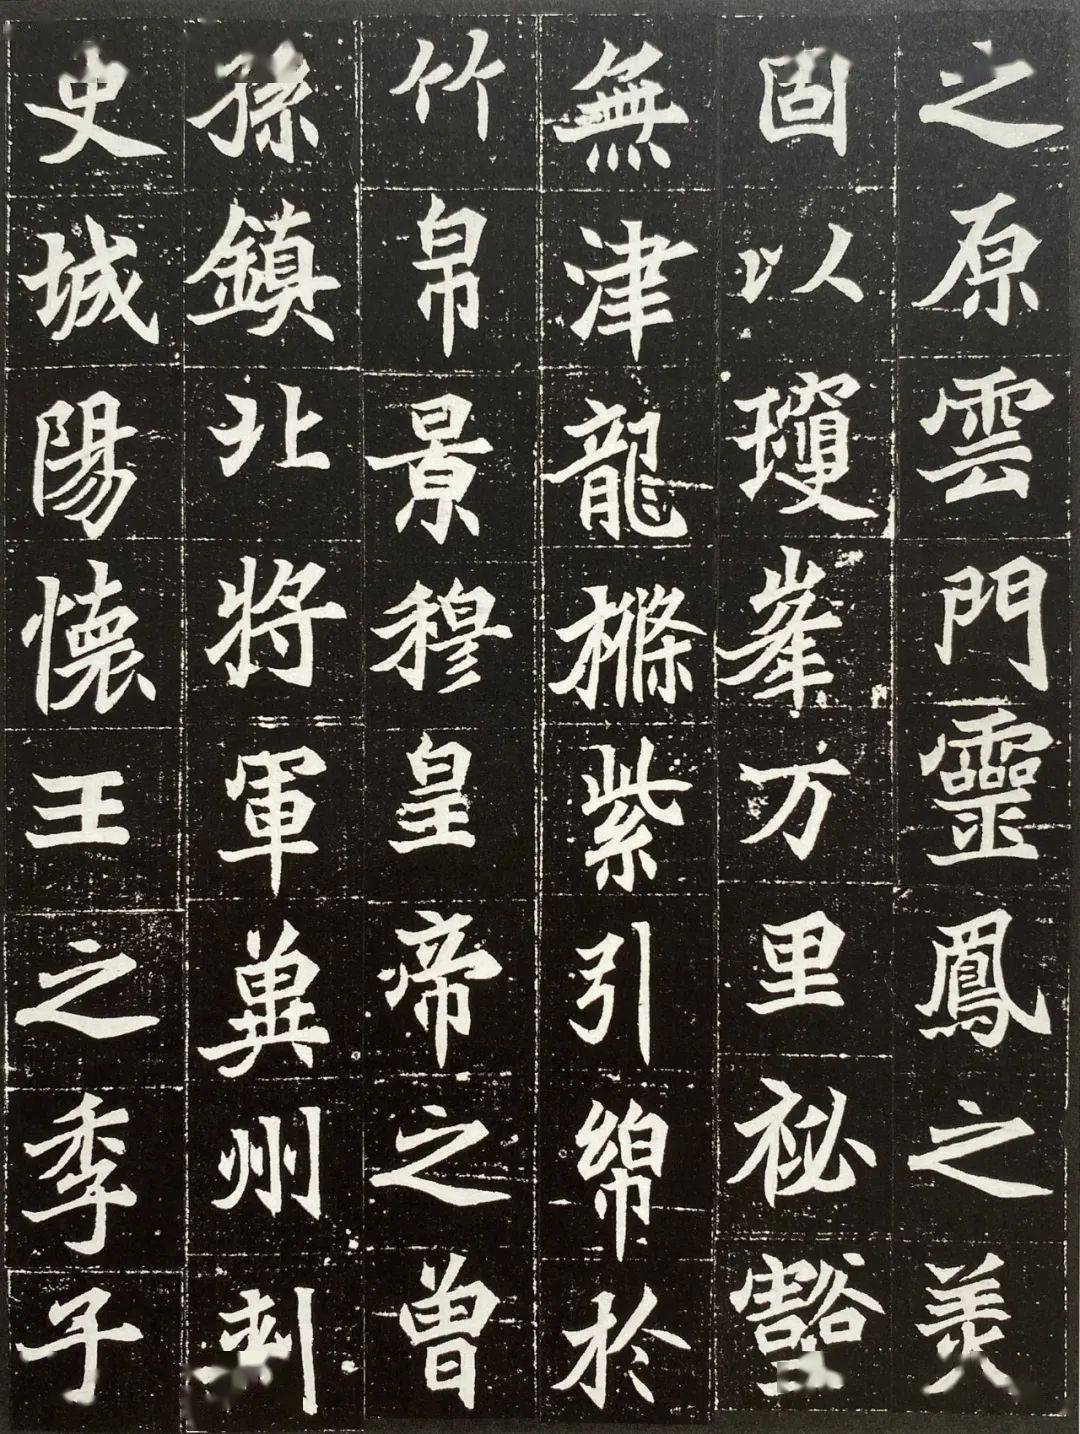 之原雲門靈鳳之美
固以瓊峯万里祕豁
無津龍樤紫引綿於
竹帛景穆皇帝之曾
孫鎮北將軍冀州刺
史城陽懷王之季子